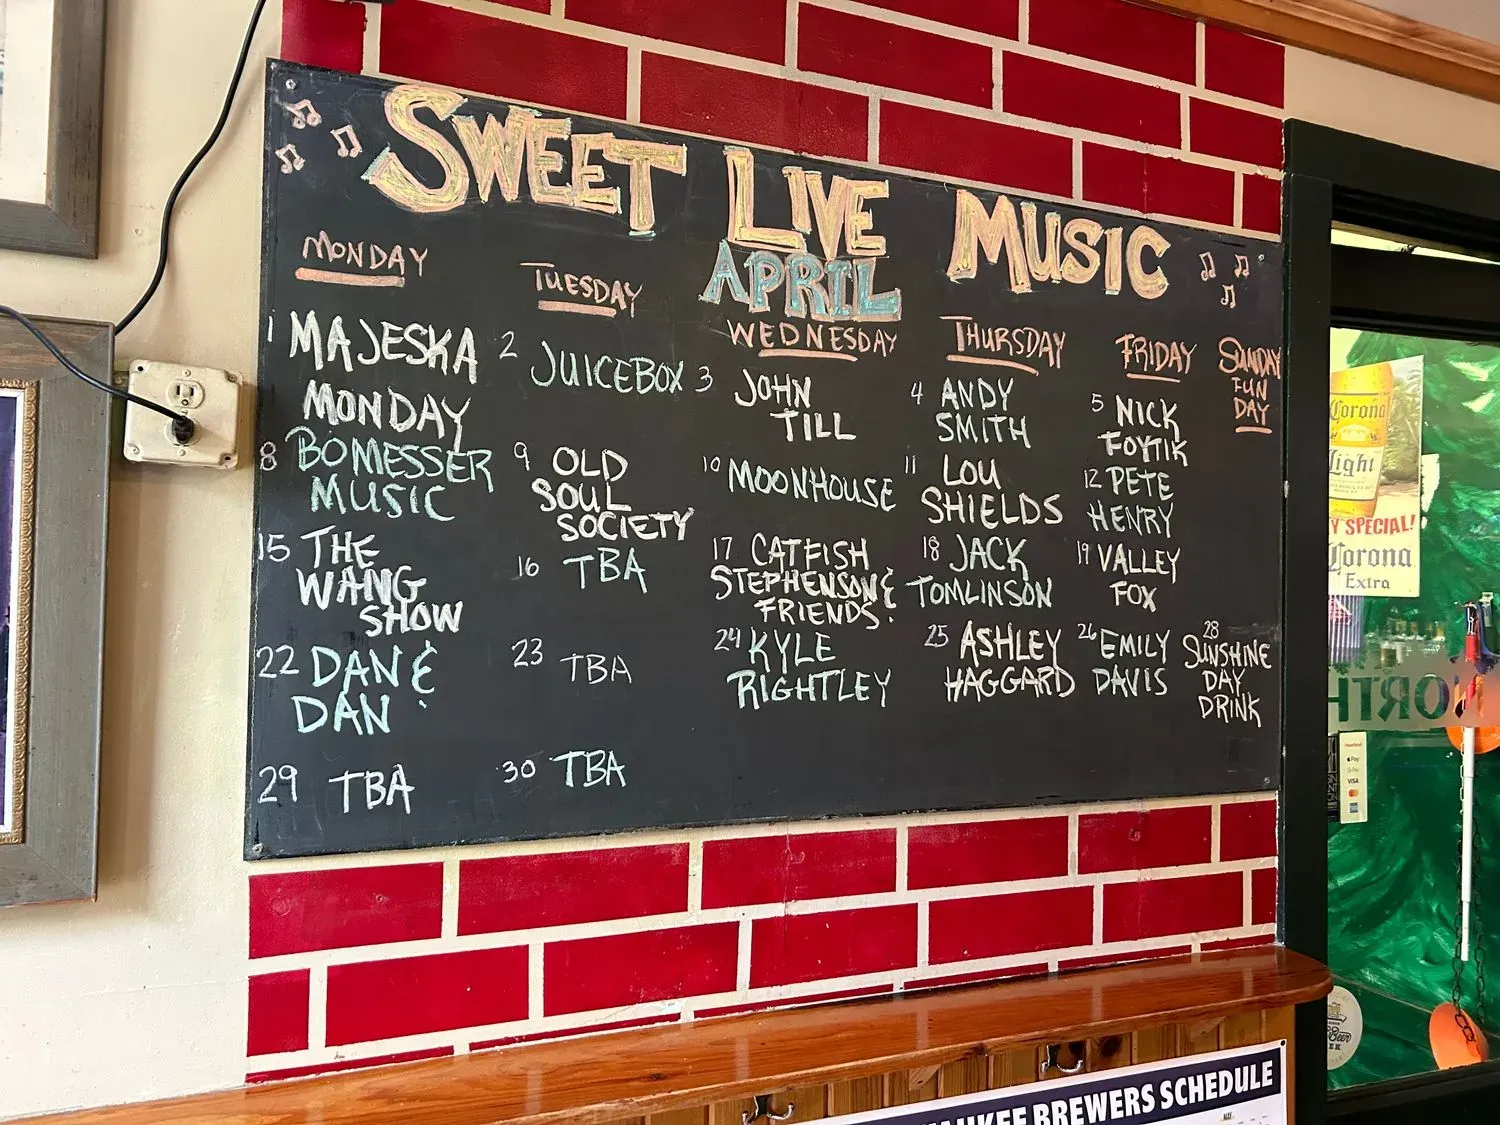 SWEET LIVE MUSIC
APRIL
MONDAY
TUESDAY
WEDNESDAY
THURSDAY
FRIDAY
SUNDAY
FUN
DAY
1 MAJESKA
MONDAY
2 JUICEBOX
3 JOHN
TILL
4 ANDY
SMITH
5 NICK
FOYTIK
8 BOMESSER
MUSIC
9 OLD
SOUL
SOCIETY
10 MOONHOUSE
11 LOU
SHIELDS
12 PETE
HENRY
15 THE
WANG
SHOW
16 TBA
17 CATFISH
STEPHENSON &
FRIENDS.
18 JACK
TOMLINSON
19 VALLEY
FOX
22 DAN &
DAN
23 TBA
24 KYLE
RIGHTLEY
25 ASHLEY
HAGGARD
26 EMILY
DAVIS
28
SUNSHINE
DAY
DRINK
29 TBA
30 TBA
Corona
Light
Y SPECIAL!
Corona
Extra
NORTH
Pay
VISA
BREWERS SCHEDULE